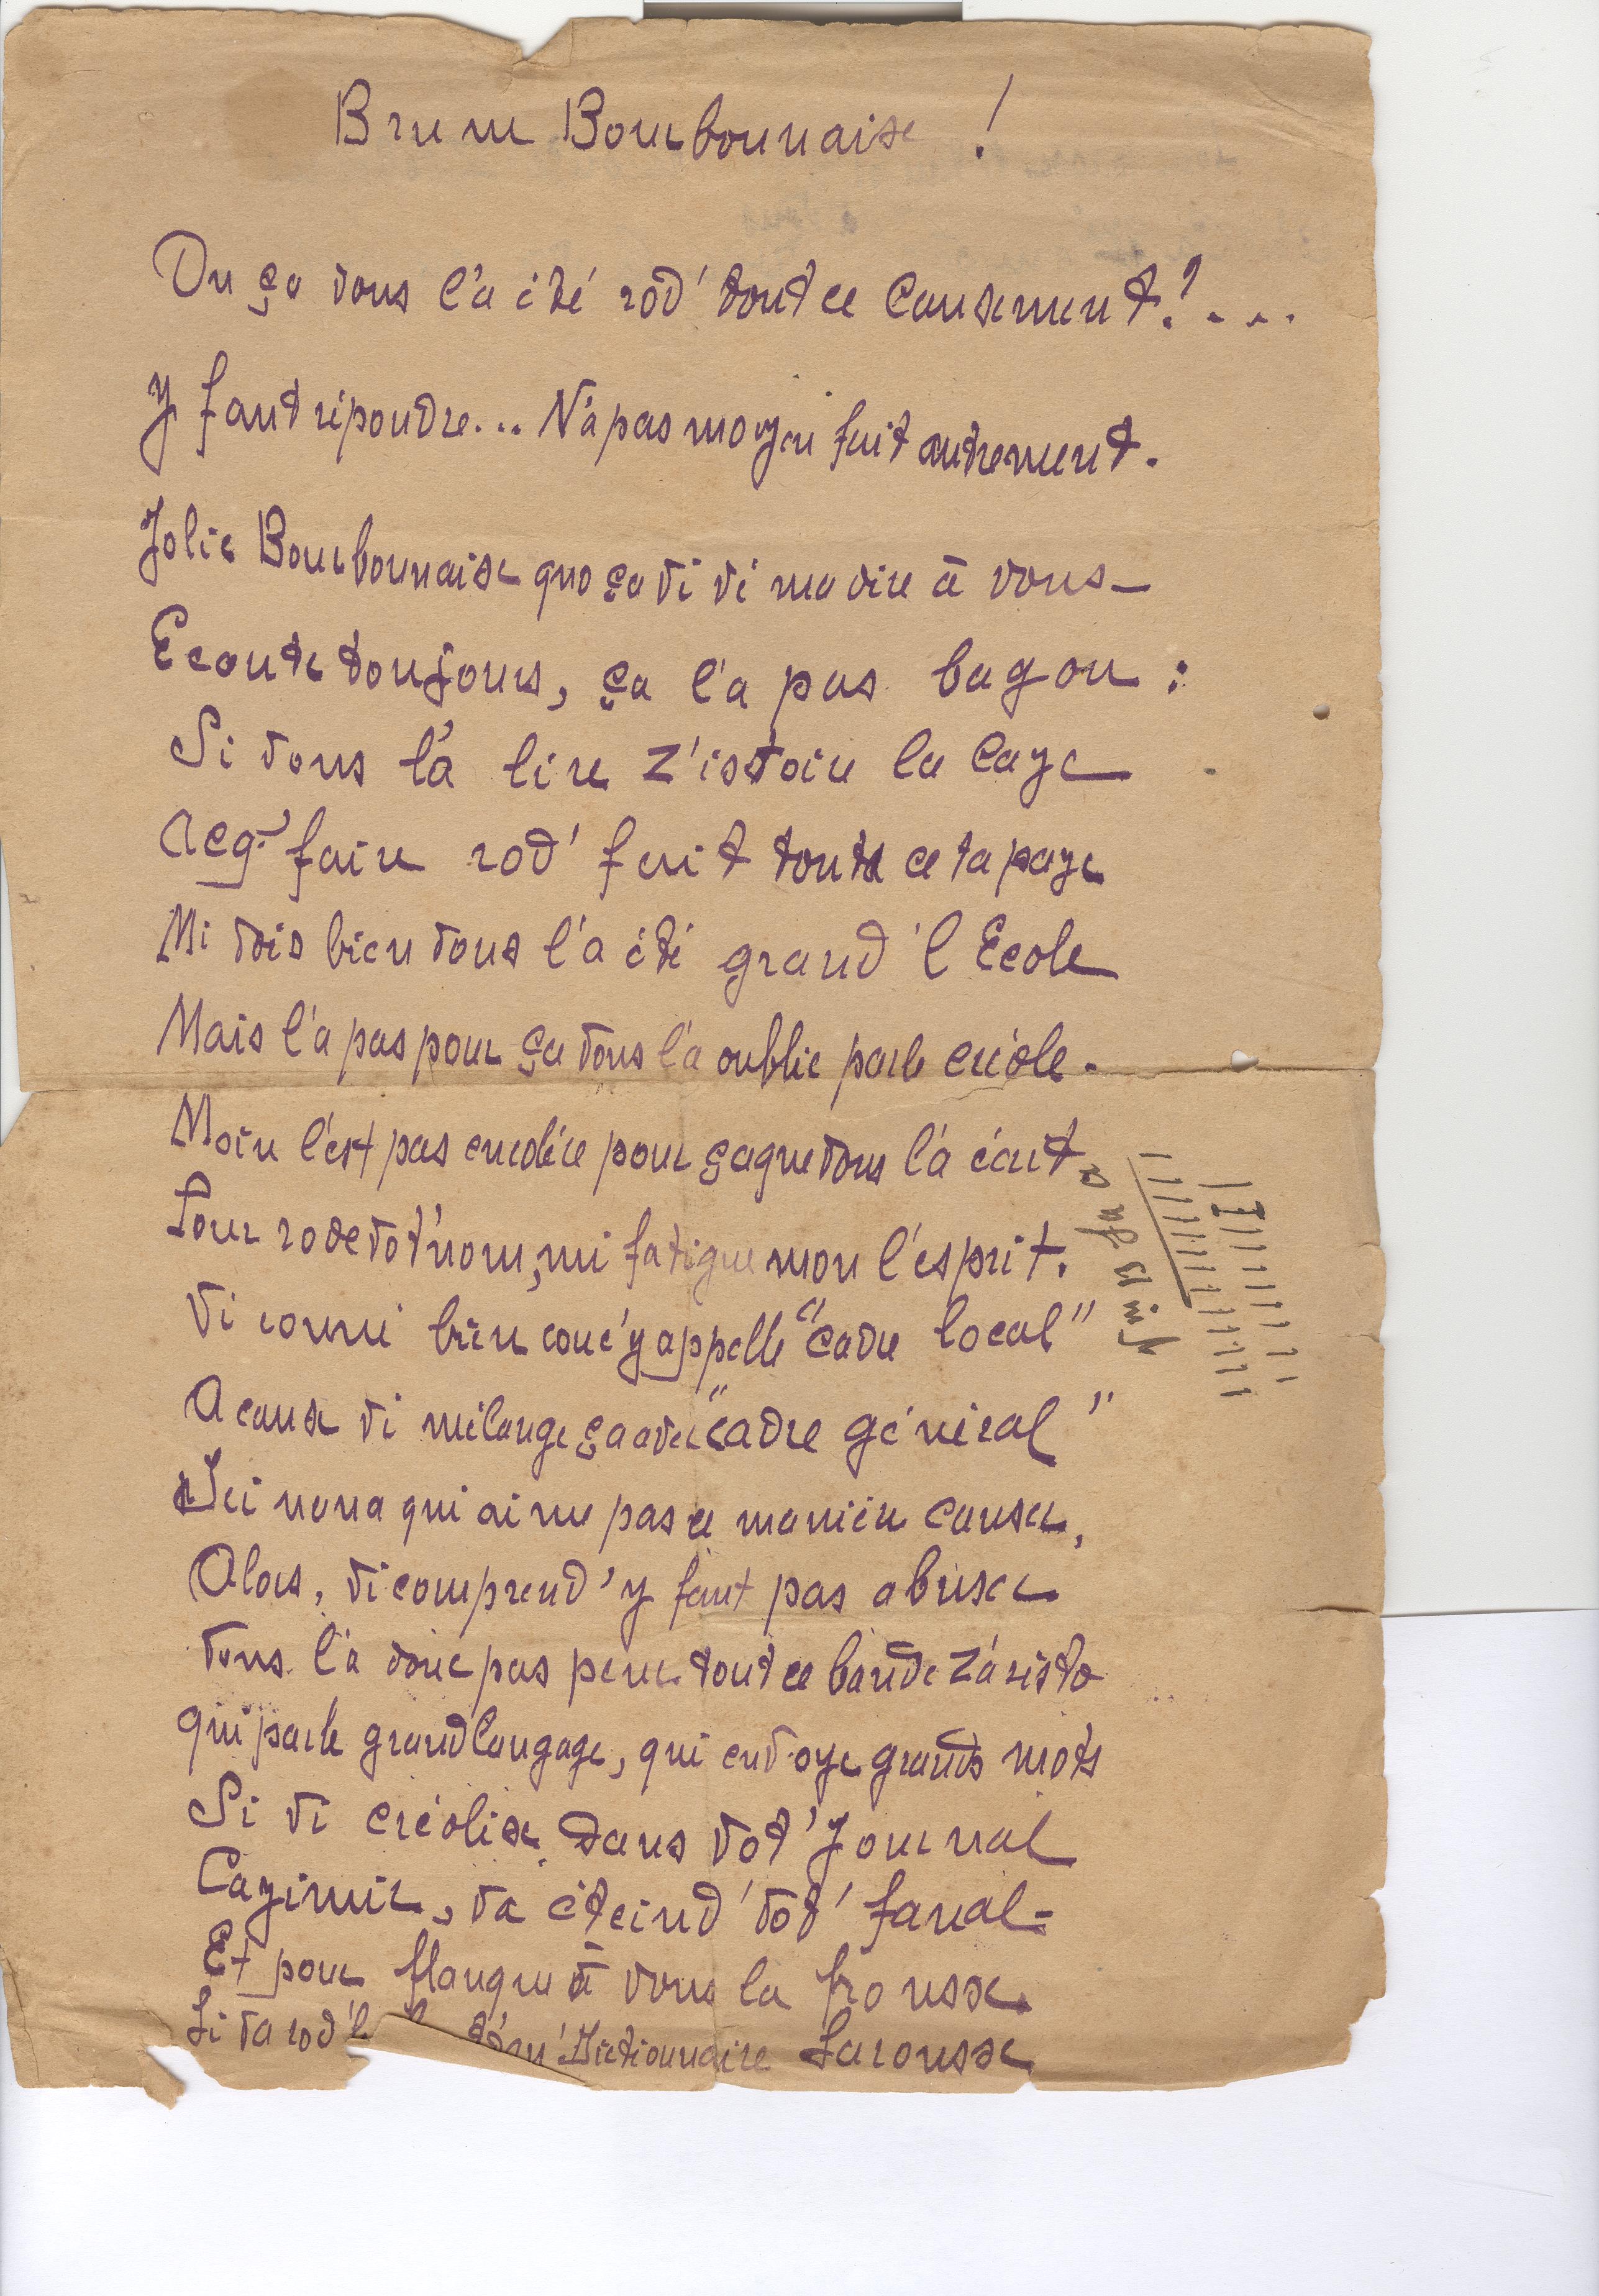 Brune Bourbonnaise !
Ou ça vous l'a été rôd' tout ce causement ?....
Y faut répondre... N'a pas moyen fait autrement.
Jolie Bourbonnaise quo ça vi vé ma dire à vous—
Ecoute toujours, ça l'a pas bagou :
Si vous l'a lire z'istoire la caze
Acq' faire rod' fait toute ce tapaze
Mi vois bien vous l'a été grand'l Ecole
Mais l'a pas pour ça vous l'a oublie parle créole.
Moin l'est pas encolère pour ça que vous l'a écrit
Pour rode vot' nom, mi fatigue mon l'esprit.
Vi conné bien couć y appelle "cadre local"
A cause vi mélange ça avec "cadre général"
Ici nana qui aime pas ce manière causer,
Alors, vi comprend' y faut pas abuser
Vous l'a donc pas peur tout ce bande z'aristo
qui parle grand langage, qui envoye grands mots
Si vi créolise dans vot' Journal
Cazimir, va éteind' vot' fanal-
Et pour flanque à vous la frousse
Li va rod' Dictionnaire Larousse